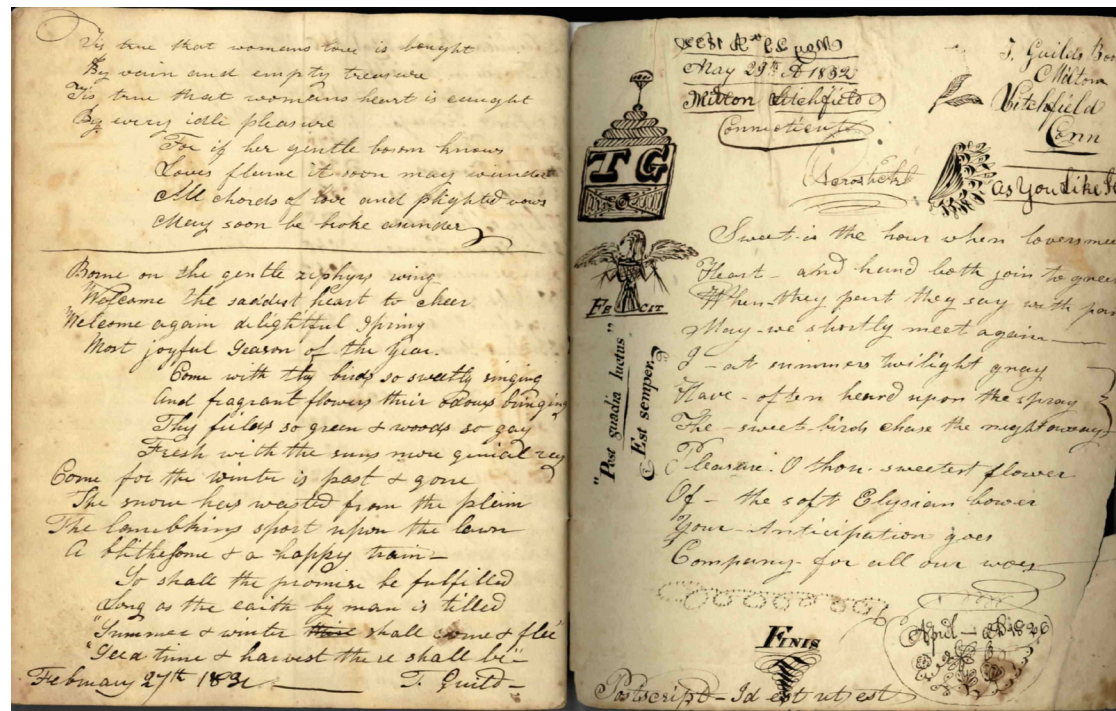 Tis true that womans love is bought
By vain and empty treasure
Tis true that womans heart is caught
By every idle pleasure
For if her gentle bosom knows
Loves flame it soon may wander
All chords of love and plighted vows
May soon be broke asunder
Borne on the gentle zephyrs wing
Welcome the saddest heart to cheer
Welcome again delightful Spring
Most joyful Season of the Year.
Come with thy birds so sweetly singing
And fragrant flowers their odours bringing
Thy fields so green & woods so gay
Fresh with the suns more genial ray
Come for the winter is past & gone
The snow has wasted from the plain
The lambkins sport upon the lawn
A blithesome & a happy train
So shall the promise be fulfilled
Long as the earth by man is tilled
"Summer & winter shall come & flee"
"Seed time & harvest there shall be"
February 27th 1832 T. Guild
May 29th A 1832
May 29th A 1832
Milton Litchfield Co
Connecticut
T. Guilds Boo
Milton
Litchfield
Conn
TG
Acrostick
as You Like
Sweet is the hour when lovers meet
Heart - and hand both join to greet
When they part they say with pain
May - we shortly meet again
I - at summers twilight gray
Have - often heard upon the spray
The - sweet birds chase the night away
Pleasure. O thou sweetest flower
Of - the soft Elysian bower
Your - Anticipation goes
Company - for all our woes
FECIT
"Post guadia luctus"
Est semper.
April 1826
FINIS
Postscript - Id est ut est